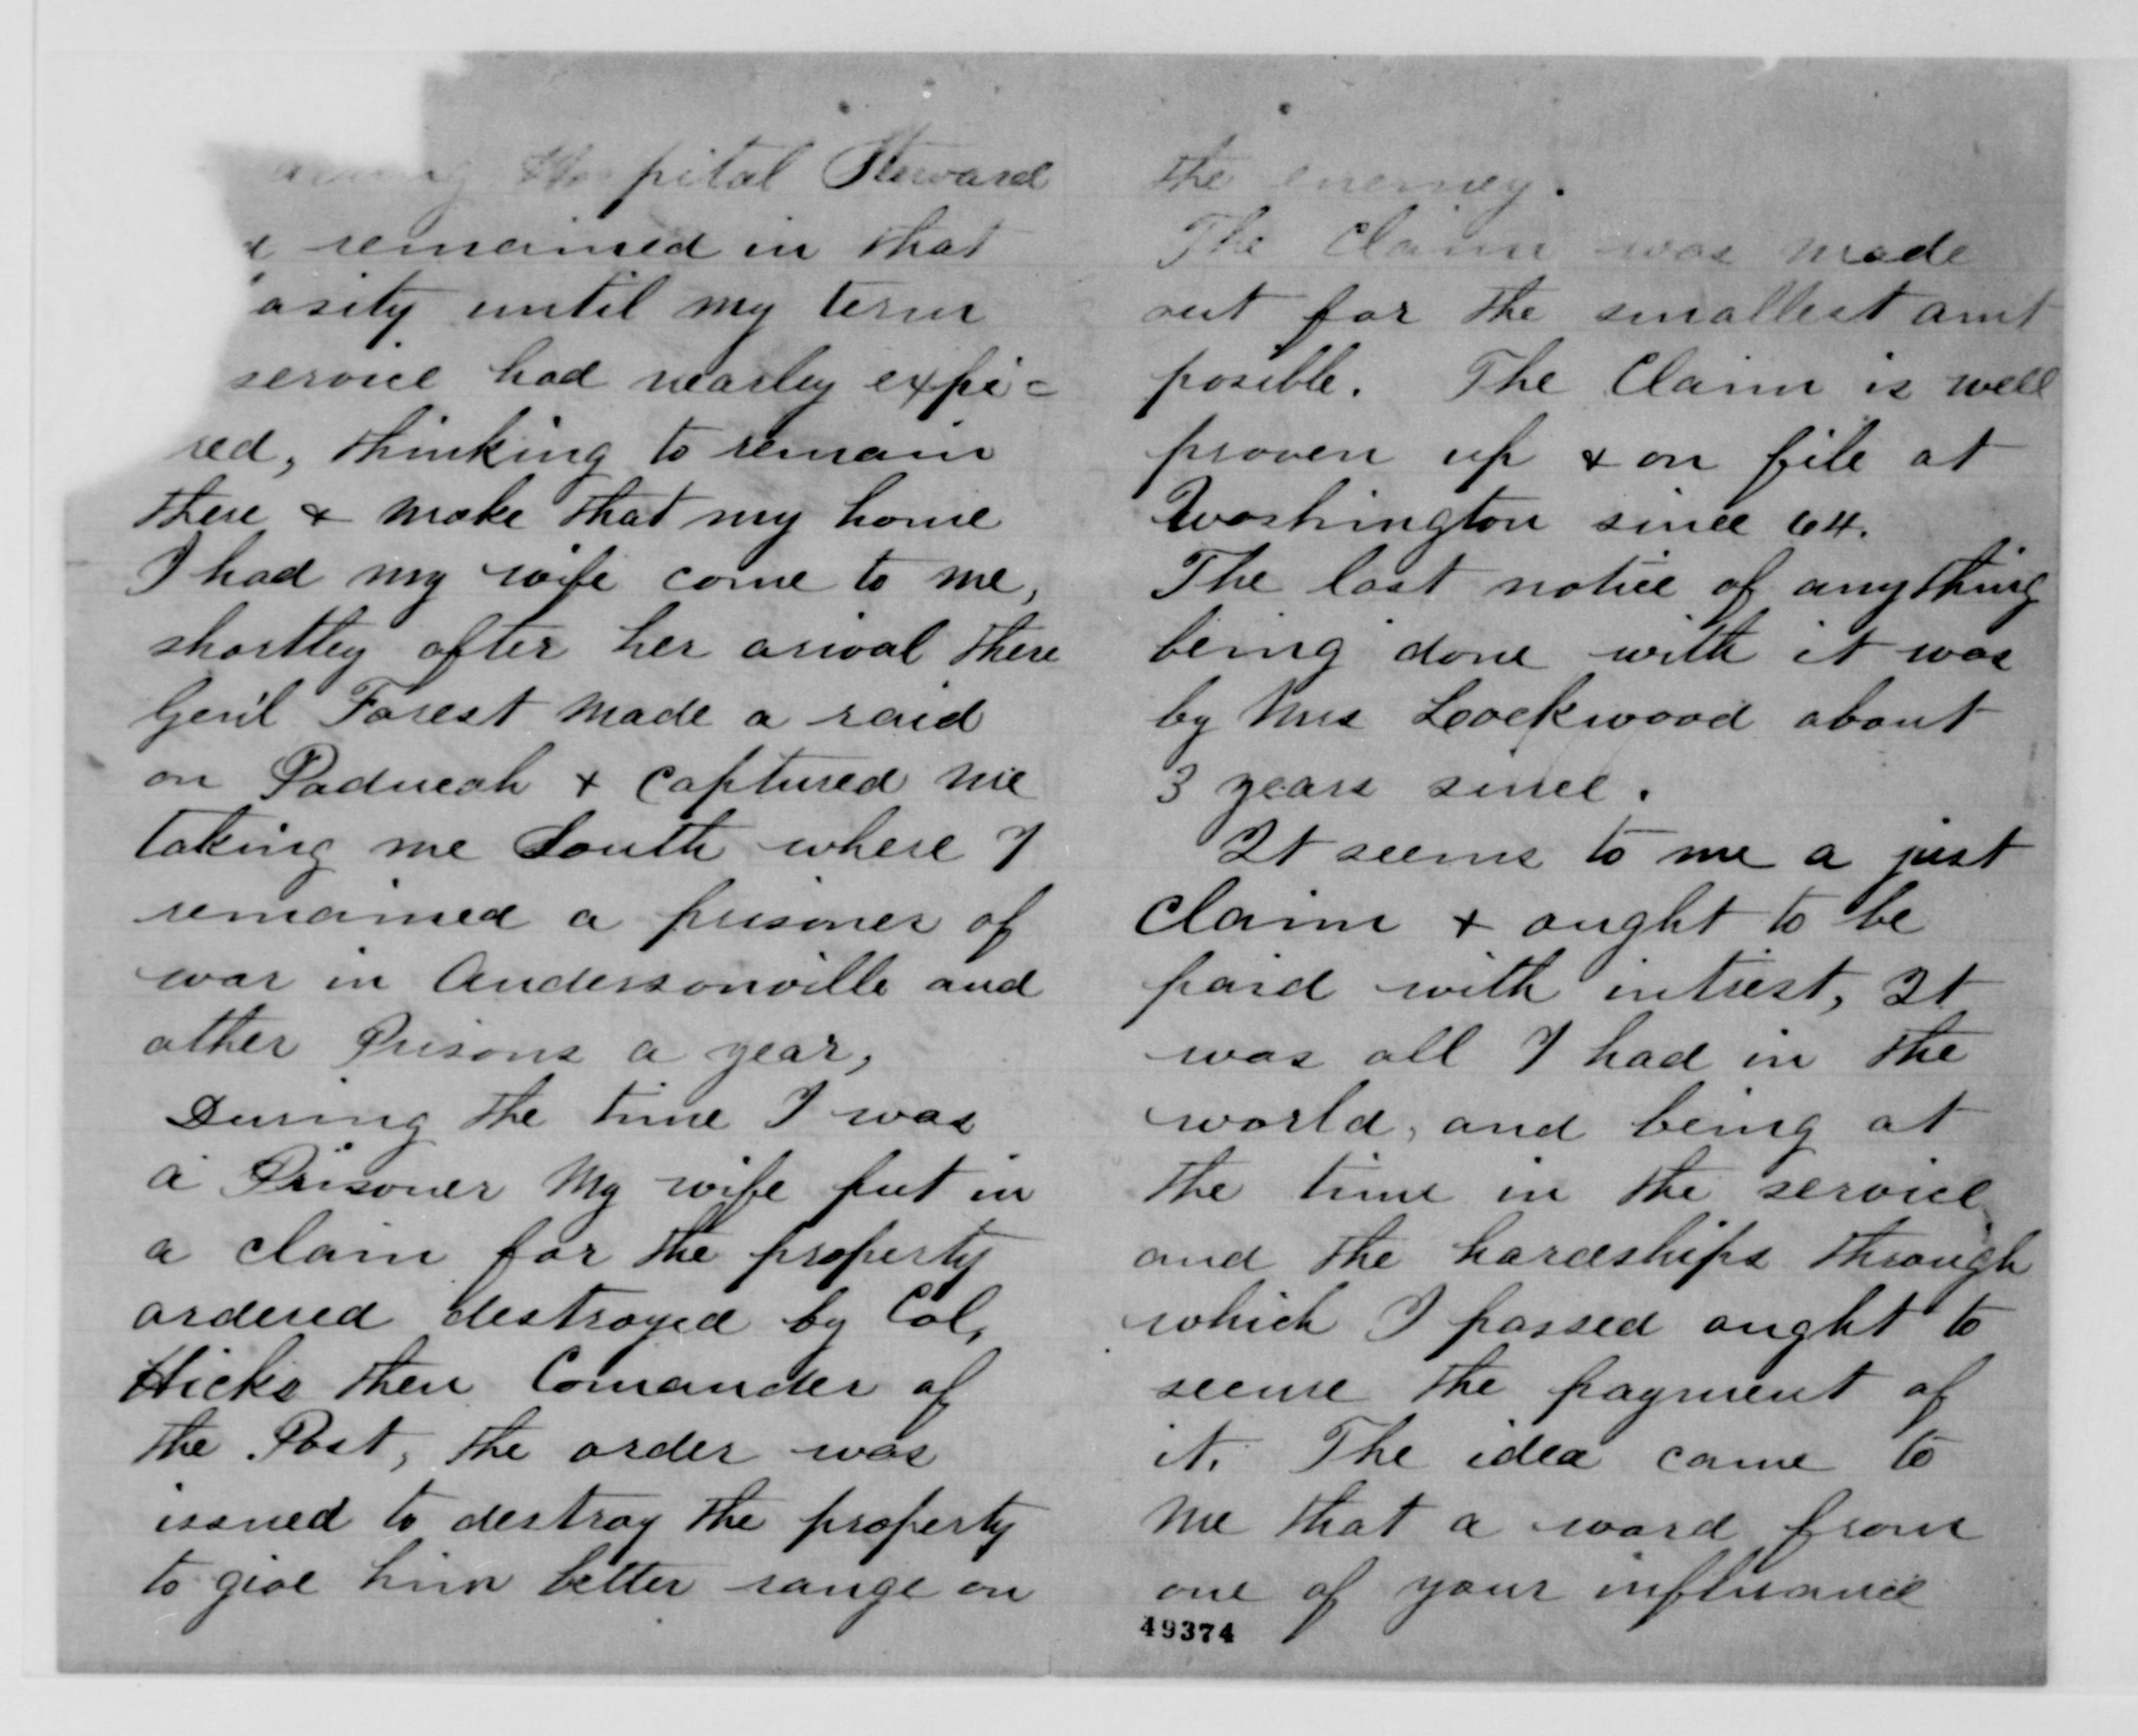 Hospital Steward
remained in that
asity until my term
service had nearley expi=
red, thinking to remain
there & make that my home
I had my wife come to me,
shortley after her arival there
Gen'l Forest made a raid
on Paducah & captured me
taking me South where I
remained a prisoner of
war in Andersonville and
other Prisons a year,
During the time I was
a Prisoner my wife put in
a claim for the property
ordered destroyed by Col,
Hicks then Comander of
the Post, the order was
issued to destroy the property
to give him better range on
the enemey.
The Claim was made
out for the smallest amt
posible. The Claim is well
proven up & on file at
Washington since 64.
The last notice of anything
being done with it was
by Mrs Lockwood about
3 years since.
It seems to me a just
claim & ought to be
paid with intrest, It
was all I had in the
world, and being at
the time in the service
and the hardships through
which I passed ought to
secure the payment of
it. The idea came to
me that a word from
one of your influance
49374